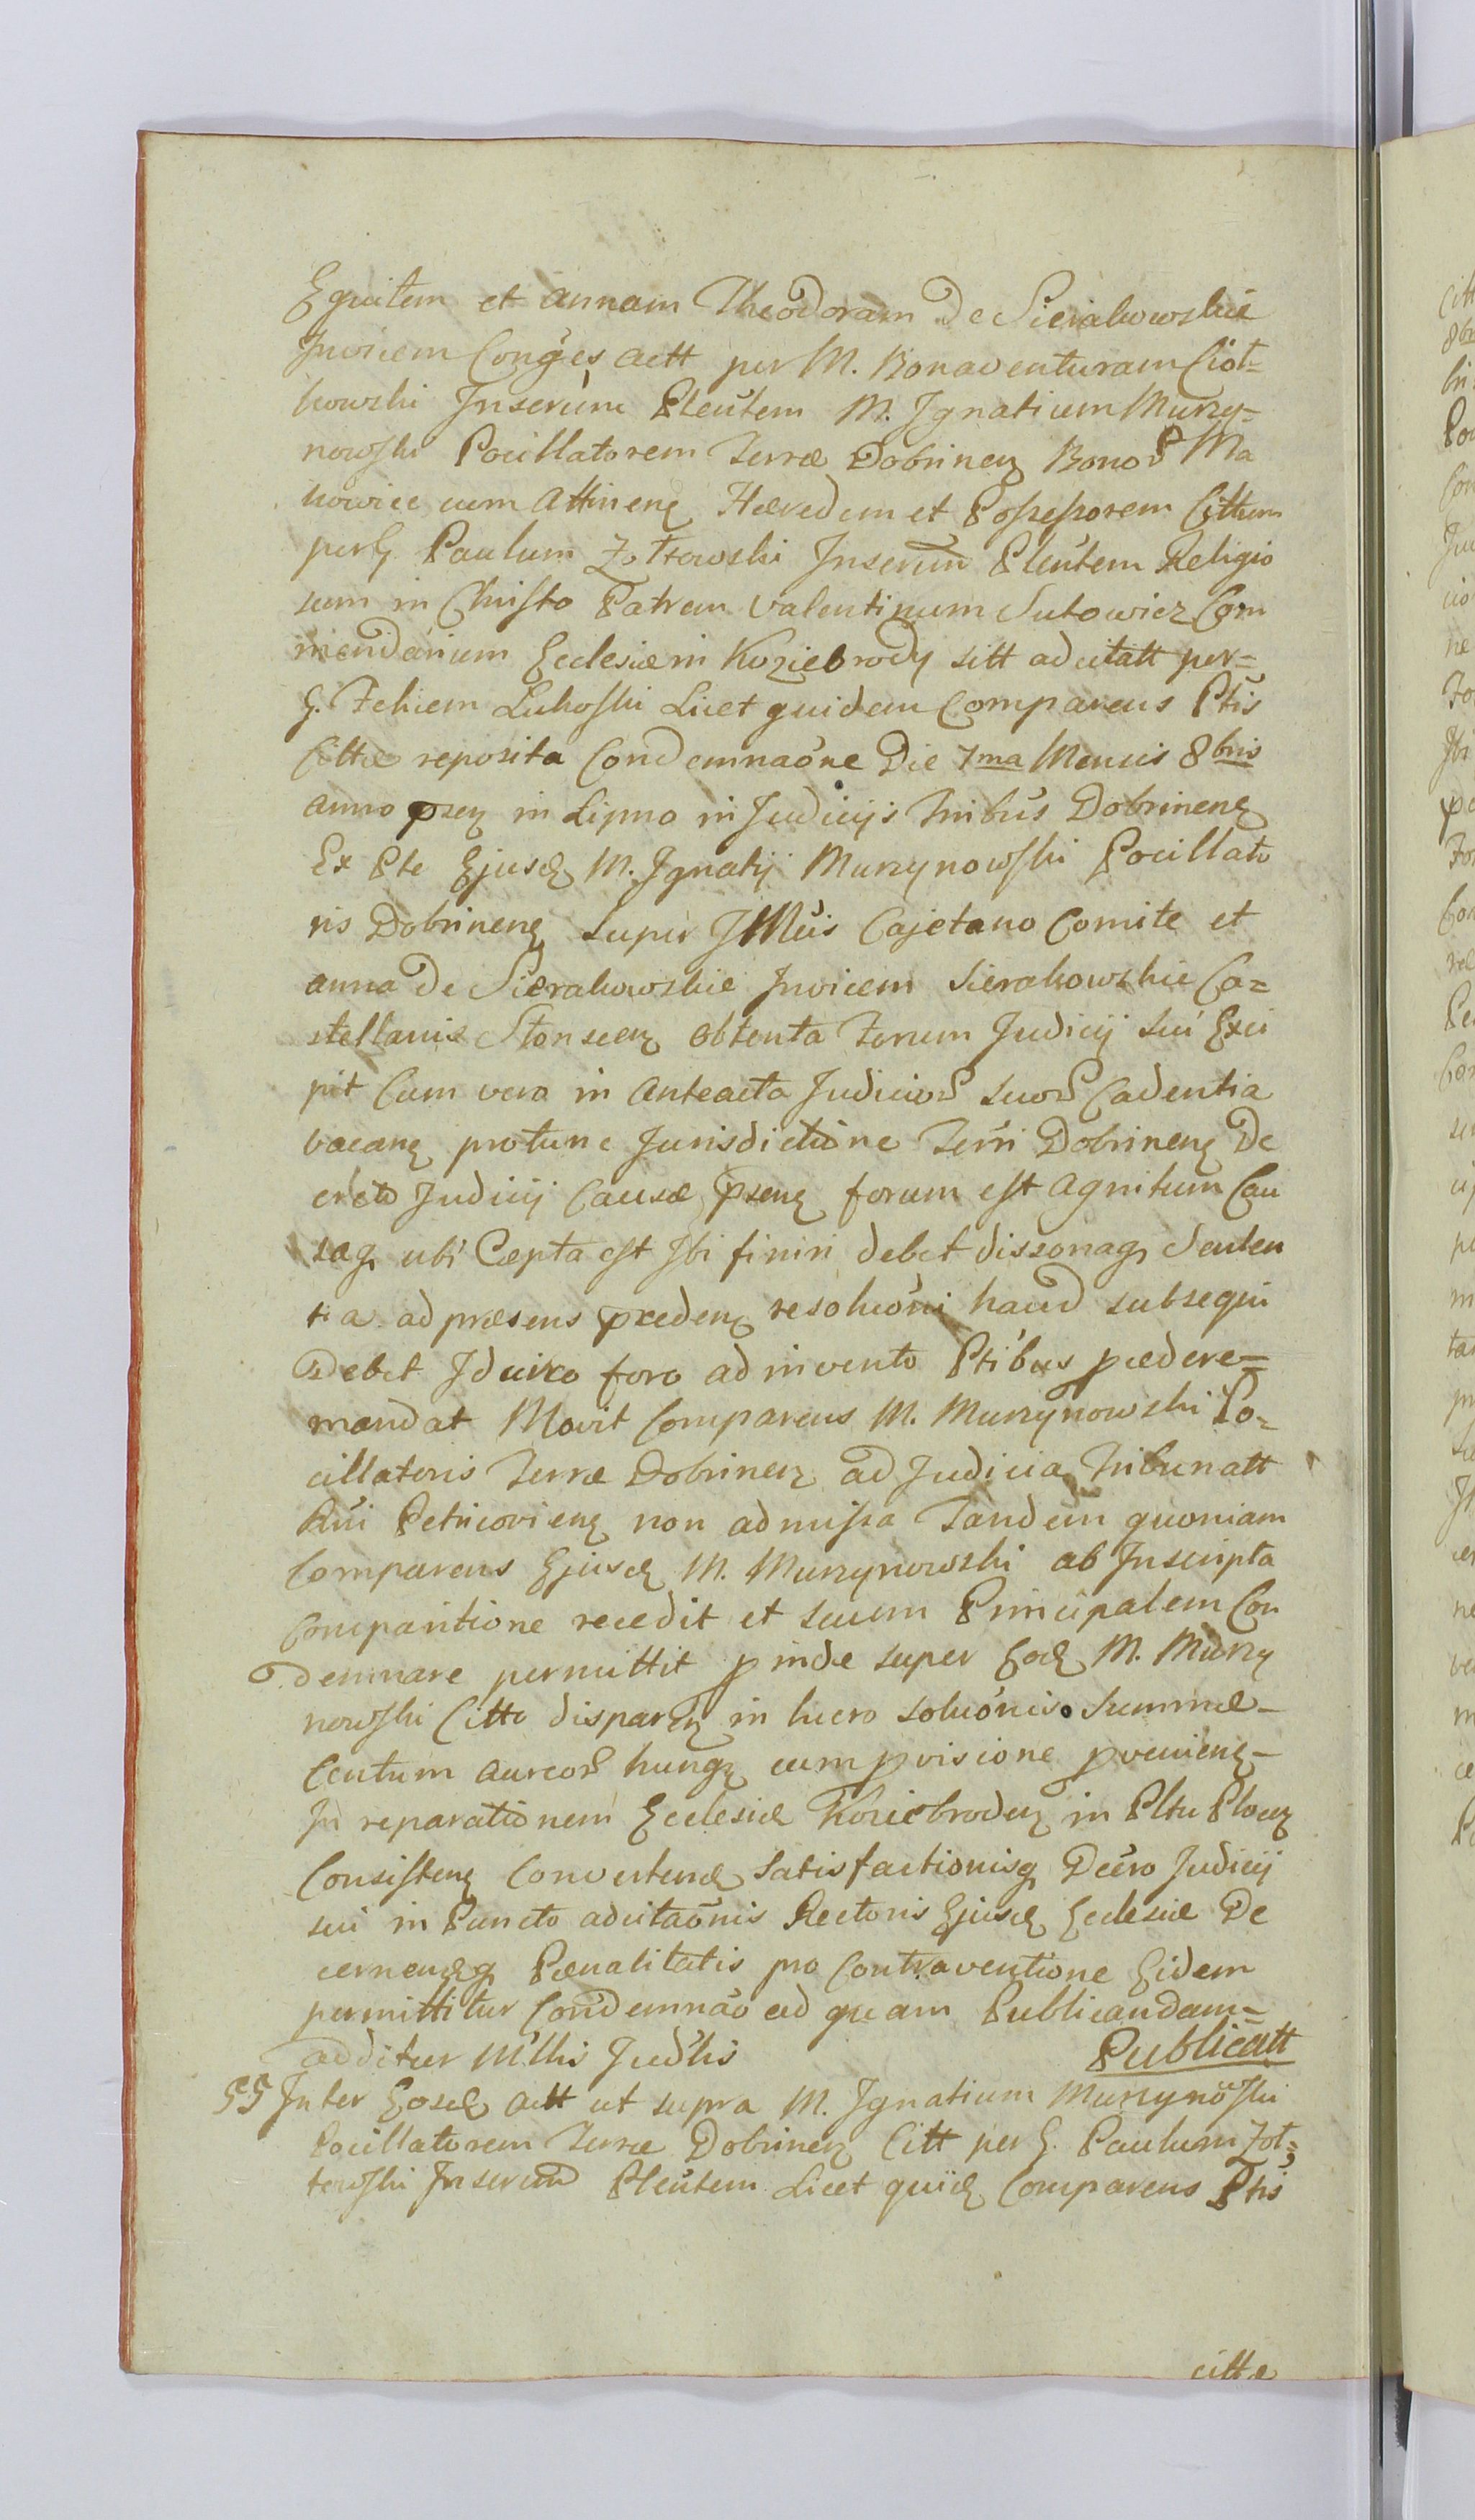 Equitem et annam Theodoram De Sierakowskie
Invicem Conges Actt per M. Bonaventuram Ciot=
kowski Inserün Pleútem M. Ignatium Murzy=
nowski Pocillatorem Terræ Dobrinen Bonor Ma
kowice cum Attinen Hæredem et Possessorem Cittum
per G. Paulum Zottowski Inserün Pleutem Religio
sum in Christo Patrem Valentinum Sutowicz Com
mendarium Ecclesiæ in Koziebrody sitt adcitatt per=
G. Felicem Lukoski Licet quidem Comparens Ptis
Cittæ reposita Condemnaóne Die 7ma Mensis 8bris
anno præn in Lipno in Judicijs Tribús Dobrinen
Ex Pte Ejusd M. Ignatij Murzynowski Pocillato
ris Dobrinen super JMMúis Cajetano Comite et
anna De Sierakowskie Invicem Sierakowskie Ca=
stellanis Stonscen obtenta Forum Judicij sui Exci
pit Cum vero in Anteacta Judicior suor Cadentia
vacan protunc Jurisdictióne Terri Dobrinen De
creto Judicij Causæ præn forum est agnitum Cau
saq ubi Cæpta est Ibi finiri debet dissonaq Senten
tia ad præsens præceden resolúóni haud subsequi
Debet Idcirco foro adinvento Ptibus procedere=
mandat Movit Comparens M. Murzynowski Po=
cillatoris Terræ Dobrinen ad Judicia Tribunatt
Rni Petricovien non admissa Tandem quoniam
Comparens Ejusd M. Murzynowski ab Inscripta
Comparitione recedit et suum Principalem Con
demnare permittit proinde super Eod M. Murzy
nowski Citto disparen in lucro solúónis summæ=
Centum aureor hung cum provisione provenien=
In reparationem Ecclesiæ Koziebroden in Pltu Plocen
Consisten Convertend satisfactionisq Decro Judicij
sui in Puncto adcitaónis Rectoris Ejusd Ecclesiæ De
cernendq Pœnalitatis pro Contraventione Eidem
permittitur Condemnáó ad quam Publicandam=
additur Mllis Judlis Publicatt
55 Inter Eosd Actt ut supra M. Ignatium Murzynoski
Pocillatorem Terræ Dobrinen Citt per G. Paulum Zot=
towski Inserün Pleútem Licet quid Comparens Ptis
cittæ